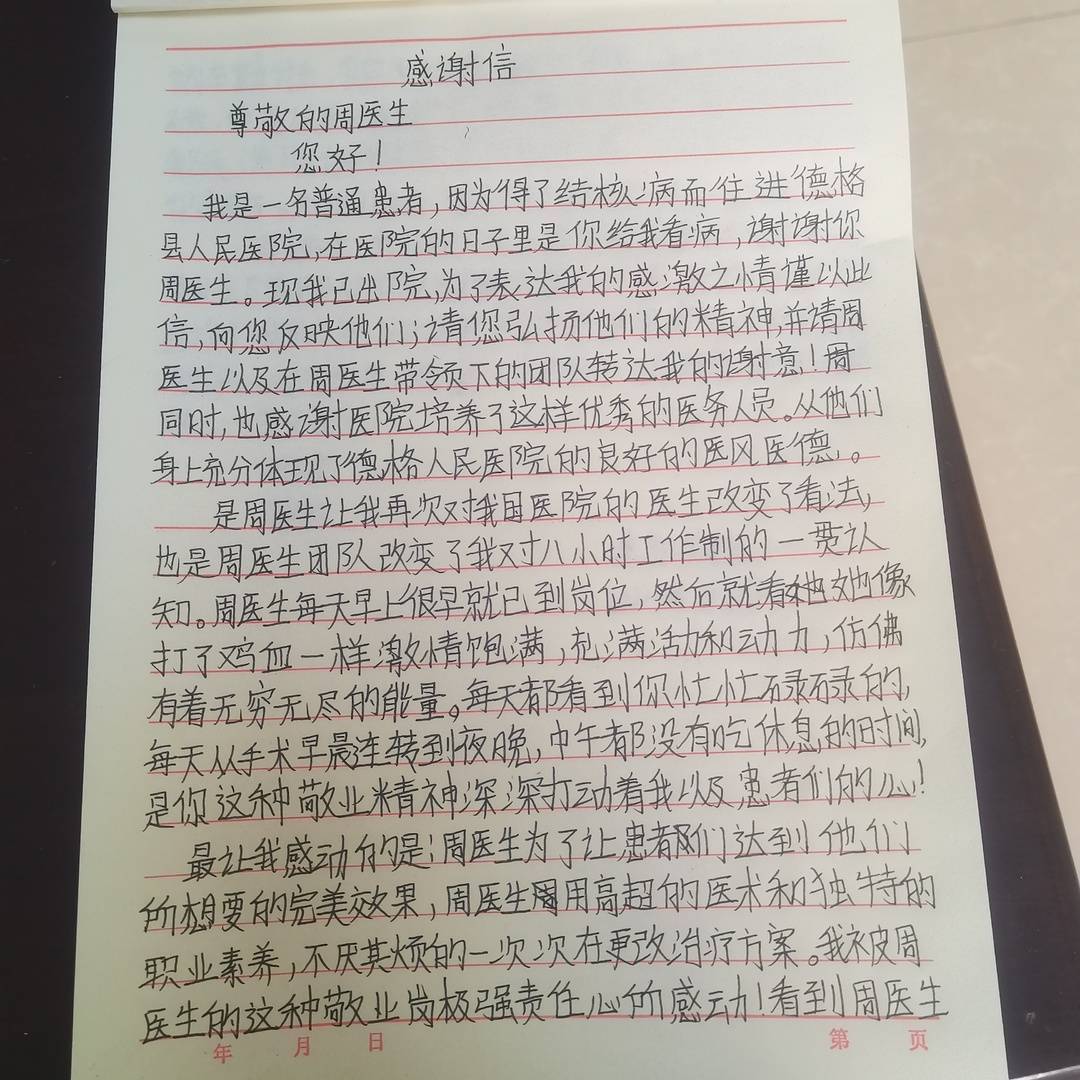 感谢信
尊敬的周医生
您好！
我是一名普通患者，因为得了结核病而住进德格
县人民医院，在医院的日子里是你给我看病，谢谢你
周医生。现我已出院，为了表达我的感激之情谨以此
信，向您反映他们；请您弘扬他们的精神，并请周
医生以及在周医生带领下的团队转达我的谢意！周
同时，也感谢医院培养了这样优秀的医务人员。从他们
身上充分体现了德格人民医院的良好的医风医德。
是周医生让我再次对我国医院的医生改变了看法，
也是周医生团队改变了我对八小时工作制的一贯认
知。周医生每天早上很早就已到岗位，然后就看她她像
打了鸡血一样激情饱满，充满活力和动力，仿佛
有着无穷无尽的能量。每天都看到你忙忙碌碌的，
每天从手术早晨连转到夜晚，中午都没有吃休息的时间，
是你这种敬业精神深深打动着我以及患者们的心！
最让我感动的是；周医生为了让患者们达到他们
所想要的完美效果，周医生用高超的医术和独特的
职业素养，不厌其烦的一次次在更改治疗方案。我被周
医生的这种敬业岗极强责任心所感动！看到周医生
年 月 日
第 页